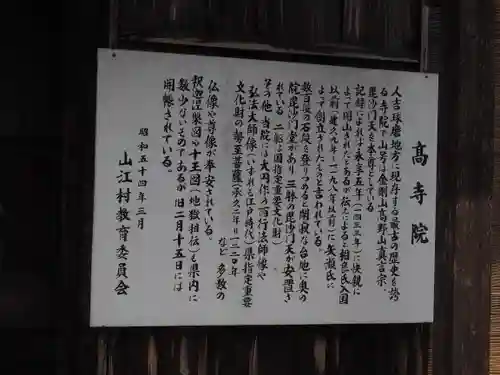 高寺院
人吉球磨地方に現存する最古の歴史を誇
る寺院で山号は金剛山高野山真言宗、
毘沙門天を本尊としている
記録によれば永享五年(一四三三年)に快親に
よって開山されたとあるが伝えによると相良氏入国
以前(建久九年・一一九八年以前)に矢瀬氏に
よって創立されたものと言われている。
数百段の石段を登りつめると閑寂な台地に奥の
院毘沙門堂があり三躰の毘沙門天が安置さ
れている。(二躰は国指定重要文化財)
その他、当院には大円作の西行法師像や
弘法大師像(いずれも江戸時代)県指定重要
文化財の勢至菩薩(承久二年・一二二〇年)
など多数の
仏像や尊像が奉安されている。
釈迦涅槃図や十王図(地獄相伝)も県内に
数少ないものであるが旧二月十五日には
開帳されている。
昭和五十四年三月
山江村教育委員会